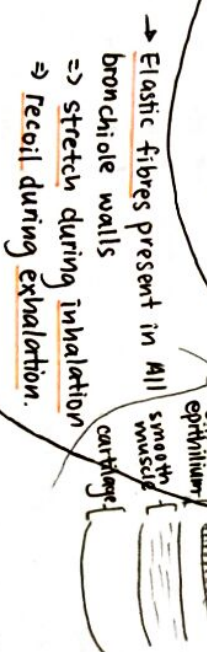 → Elastic fibres present in All
bronchiole walls
=> stretch during inhalation
=> recoil during exhalation.
epithilium
smooth
muscle
cartilage